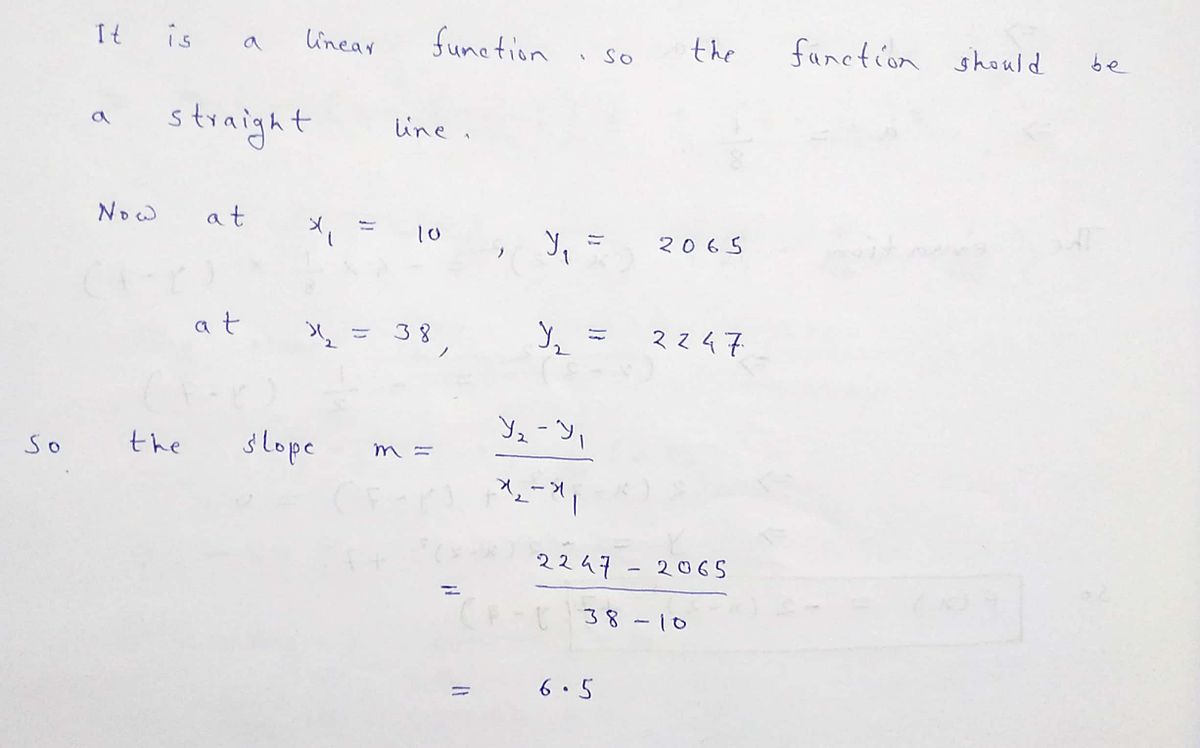 It is a linear function . so the function should be
a straight line .
Now at x₁ = 10 , y₁ = 2065
at x₂ = 38 , y₂ = 2247
so the slope m = y₂ - y₁
x₂ - x₁
= 2247 - 2065
38 - 10
= 6.5